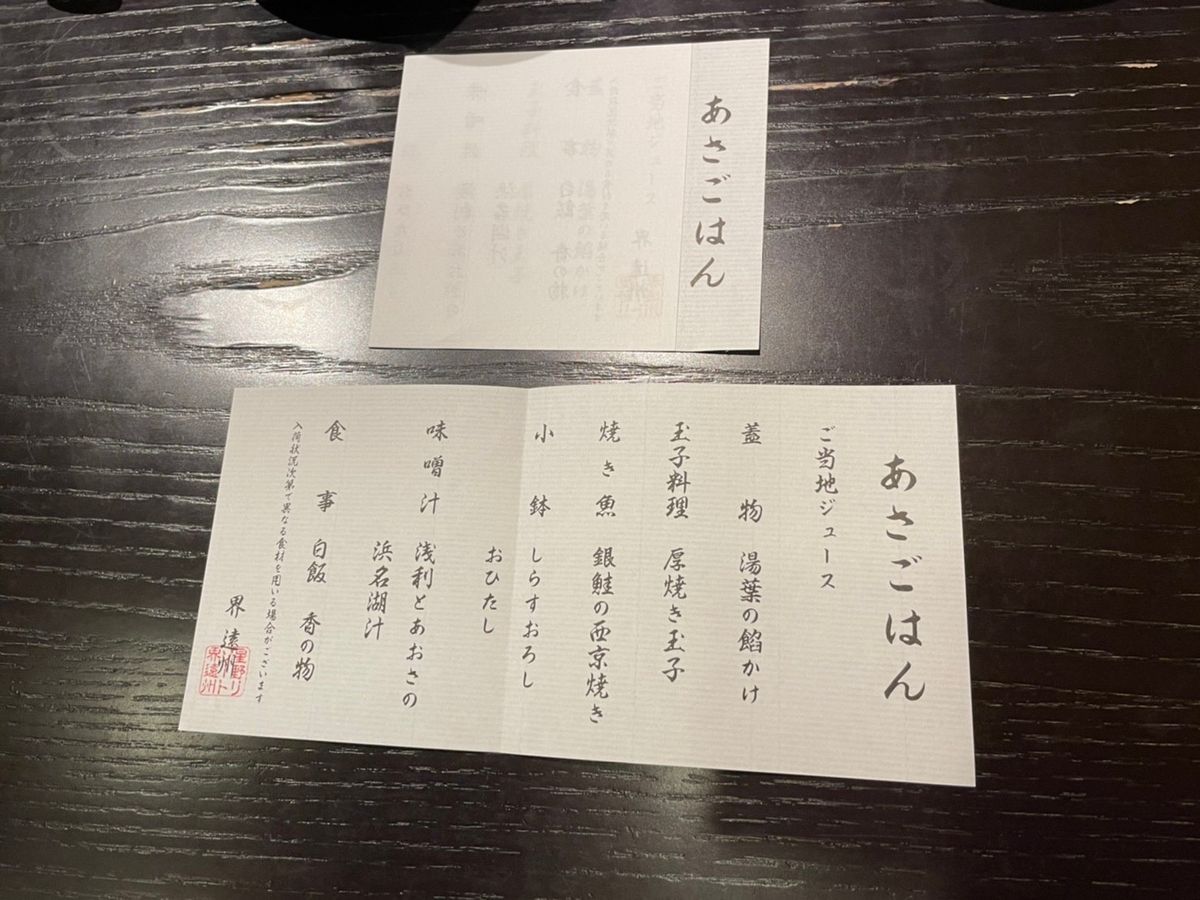 あさごはん
あさごはん
ご当地ジュース
蓋物 湯葉の餡かけ
玉子料理 厚焼き玉子
焼き魚 銀鮭の西京焼き
小鉢 しらすおろし
おひたし
味噌汁 浅利とあおさの
浜名湖汁
食事 白飯 香の物
入荷状況次第で異なる食材を用いる場合がございます
界 遠州
星野リ
ゾート
界遠州